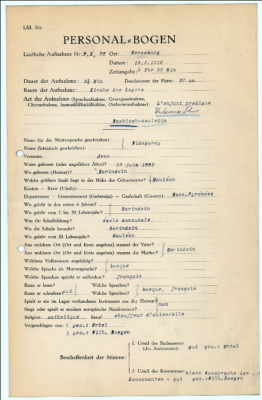 Lfd. No.
PERSONAL=BOGEN
Lautliche Aufnahme Nr.: P.K. Ort: Merseburg
Datum:
Zeitangabe: Uhr 30 Min
Dauer der Aufnahme: Min Durchmesser der Platte: 27 cm
Raum der Aufnahme: Kirche des Lagers
Art der Aufnahme (Sprechaufnahme, Gesangsaufnahme,
Choraufnahme, Instrumentenaufnahme, Orchesteraufnahme): L'enfant prodigue
Baskisch-souletin
Name (in der Muttersprache geschrieben):
Name (lateinisch geschrieben):
Vorname: Jean
Wann geboren (oder ungefähres Alter)? 10 Juin 1882
Wo geboren (Heimat)? Garindein
Welche größere Stadt liegt in der Nähe des Geburtsortes? Mauléon
Kanton — Kreis (Ujezd):
Department — Gouvernement (Gubernija) — Grafschaft (County): Bass.Pyrénées
Wo gelebt in den ersten 6 Jahren? Garindein
Wo gelebt vom 7. bis 20. Lebensjahr? Garindein
Was für Schulbildung? école communale
Wo die Schule besucht? Garindein
Wo gelebt vom 20. Lebensjahr? Mauléon
Aus welchem Ort (Ort und Kreis angeben) stammt der Vater? Garindein
Aus welchem Ort (Ort und Kreis angeben) stammt die Mutter?
Welchem Volksstamm angehörig?
Welche Sprache als Muttersprache? basque
Welche Sprachen spricht er außerdem? français
Kann er lesen? Welche Sprachen? basque, français
Kann er schreiben? Welche Sprachen?
Spielt er ein im Lager vorhandenes Instrument aus der Heimat? non
Singt oder spielt er modern europäische Musikweisen?
Religion: catholique Beruf: chauffeur d'automobile
Vorgeschlagen von: 1. gez.: Urtel
2. gez.: Wilh. Doegen
Beschaffenheit der Stimme:
1. Urteil des Fachmannes (des Assistenten): gut gez.: Urtel
2. Urteil des Kommissars: klare Aussprache der
Konsonanten - gut gez.: Wilh. Doegen